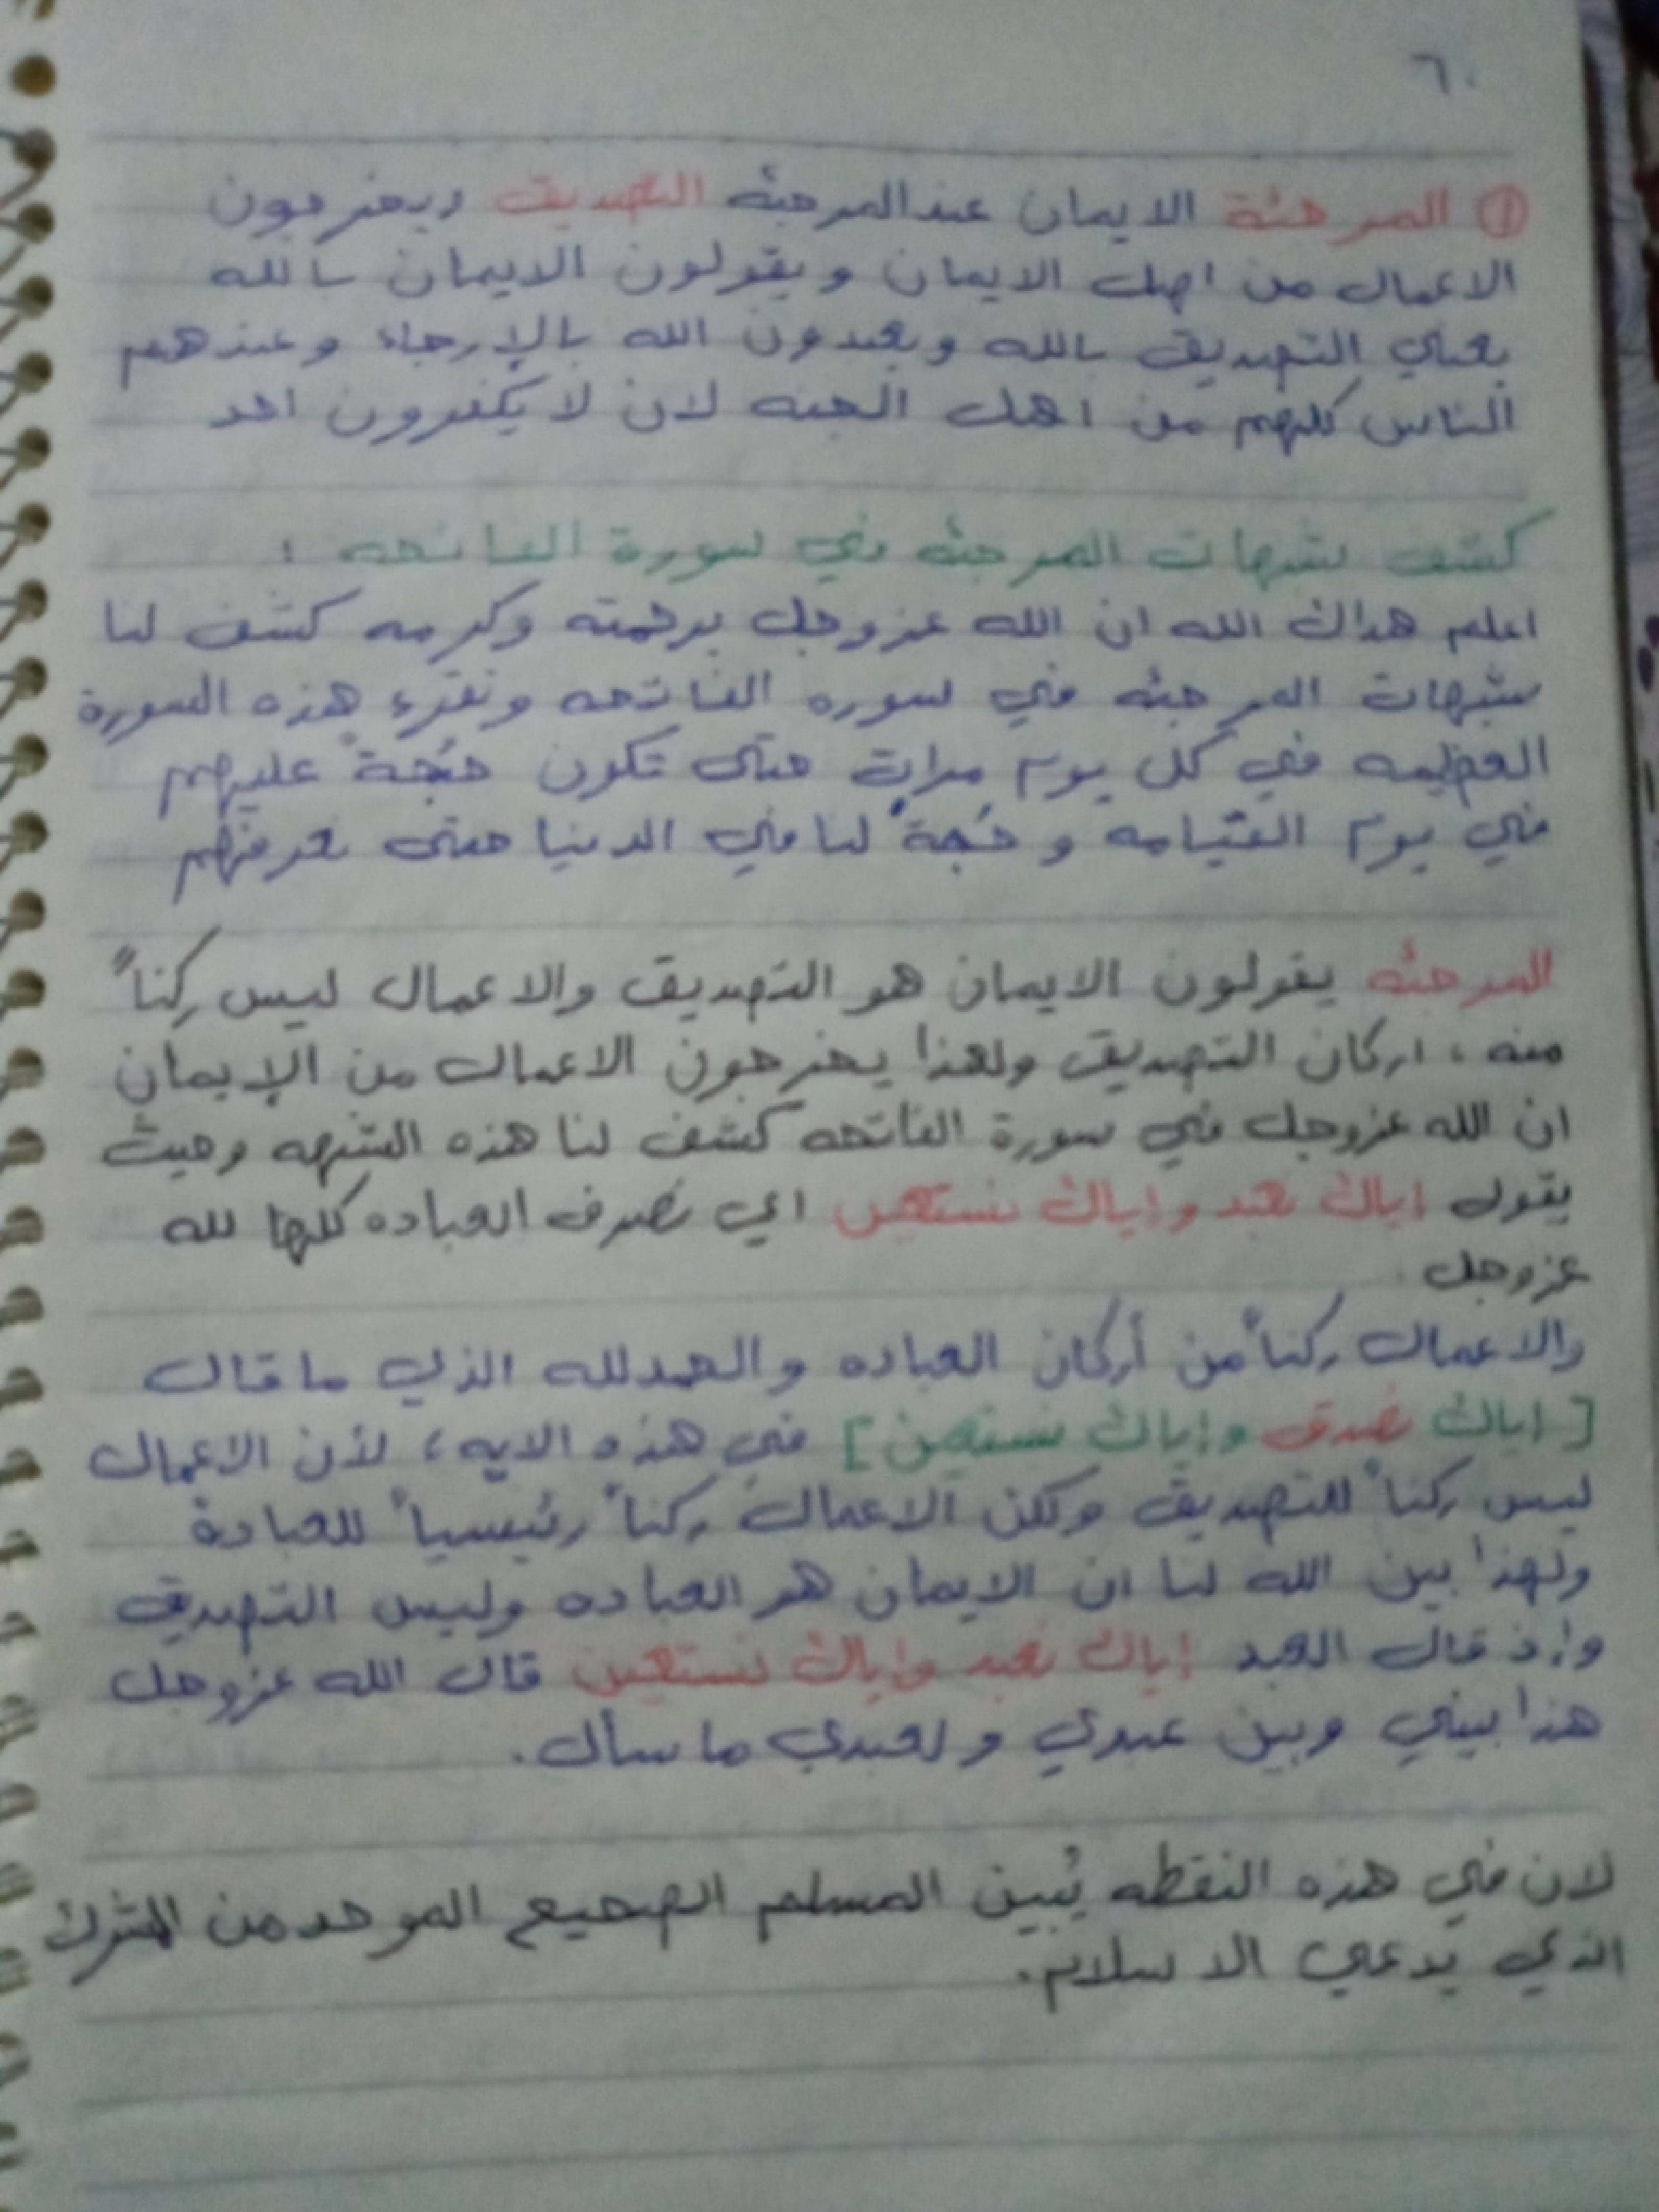 ٦٠
① المرجئة الايمان عند المرجئه التصديق ويخرجون
الاعمال من اهل الايمان ويقولون الايمان بالله
يعني التصديق بالله ويعبدون الله بالإرجاء وعندهم
الناس كلهم من اهل الجنه لان لا يكفرون احد
كشف شبهات المرجئه في سورة الفاتحه :
اعلم هداك الله ان الله عزوجل برحمته وكرمه كشف لنا
شبهات المرجئه في سوره الفاتحه ونقرء هذه السورة
العظيمه في كل يوم مرات حتى تكون حُجةً عليهم
في يوم القيامه و حُجةً لنا في الدنيا حتى نعرفهم
المرجئه يقولون الايمان هو التصديق والاعمال ليس رِكناً
منه ، اركان التصديق ولهذا يخرجون الاعمال من الإيمان
ان الله عزوجل في سورة الفاتحه كشف لنا هذه الشبهه وحيث
يقول إياك نعبد وإياك نستعين اي نصرف العباده كلها لله
عزوجل
والاعمال ركناً من أركان العباده والحمدلله الذي ما قال
[ إياك نصدق وإياك نستعين ] في هذه الايه ، لأن الاعمال
ليس ركناً للتصديق ولكن الاعمال ركناً رئيسياً للعبادة
ولهذا بين الله لنا ان الايمان هو العباده وليس التصديق
وإذ قال العبد إياك نعبد وإياك نستعين قال الله عزوجل
هذا بيني وبين عبدي ولعبدي ما سأل .
لان في هذه النقطه يُبين المسلم الصحيح الموحد من المشرك
الذي يدعي الاسلام .